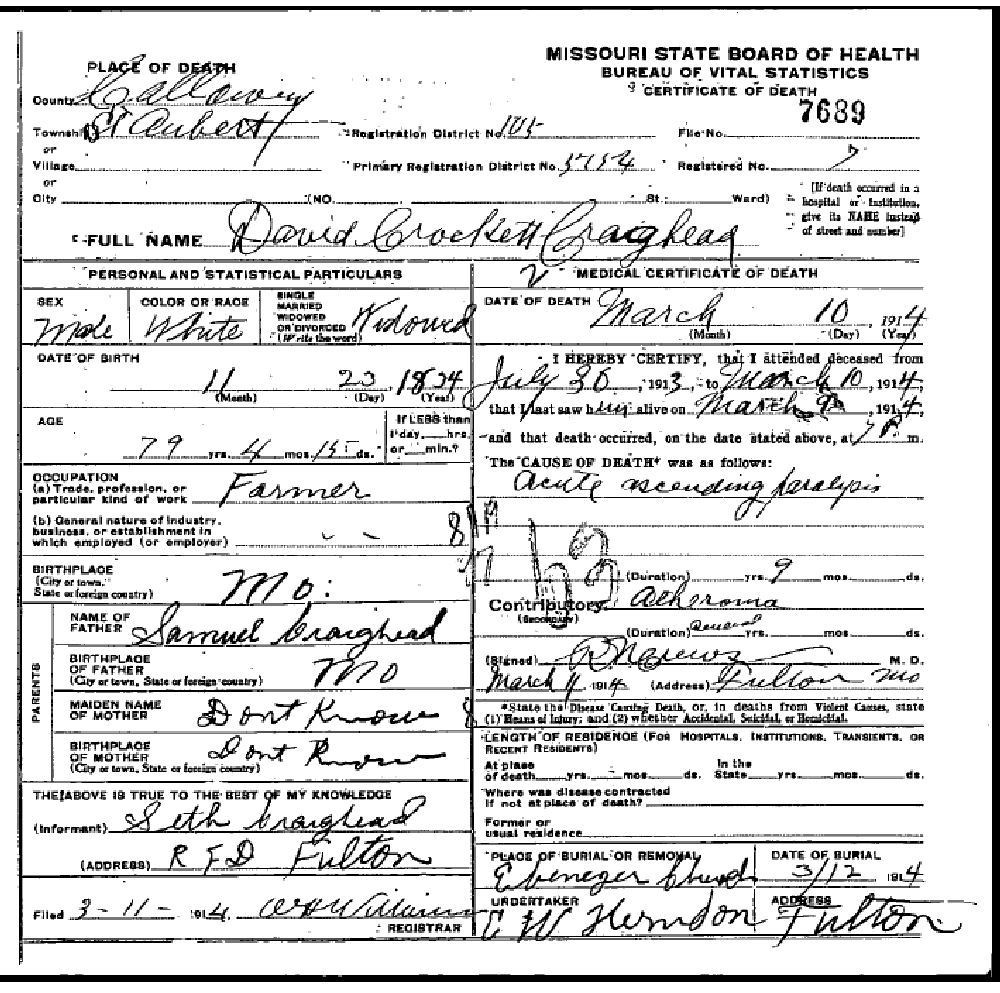 MISSOURI STATE BOARD OF HEALTH
BUREAU OF VITAL STATISTICS
CERTIFICATE OF DEATH
7689
PLACE OF DEATH
County Calloway
Township St Aubert Registration District No. 105 File No.
or
Village Primary Registration District No. 5154 Registered No. 7
or
City (NO. St.: Ward)
[If death occurred in a hospital or institution, give its NAME instead of street and number]
FULL NAME David Crockett Craighead
PERSONAL AND STATISTICAL PARTICULARS
SEX Male
COLOR OR RACE White
SINGLE MARRIED WIDOWED OR DIVORCED (Write the word) Widowed
DATE OF BIRTH
11 23 1834
(Month) (Day) (Year)
AGE
79 yrs. 4 mos. 15 ds.
If LESS than 1 day, hrs. or min.?
OCCUPATION
(a) Trade, profession, or particular kind of work Farmer
(b) General nature of industry, business, or establishment in which employed (or employer) - -
BIRTHPLACE
(City or town, State or foreign country) Mo:
PARENTS
NAME OF FATHER Samuel Craighead
BIRTHPLACE OF FATHER
(City or town, State or foreign country) Mo
MAIDEN NAME OF MOTHER Dont Know
BIRTHPLACE OF MOTHER
(City or town, State or foreign country) Dont Know
THE ABOVE IS TRUE TO THE BEST OF MY KNOWLEDGE
(Informant) Seth Craighead
(ADDRESS) R F D Fulton
Filed 3-11- 1914
REGISTRAR
MEDICAL CERTIFICATE OF DEATH
DATE OF DEATH March 10, 1914
(Month) (Day) (Year)
I HEREBY CERTIFY, that I attended deceased from
July 30, 1913, to March 10, 1914,
that I last saw him alive on March 9th, 1914,
and that death occurred, on the date stated above, at 7 P. m.
The CAUSE OF DEATH* was as follows:
Acute ascending paralysis
63
(Duration) yrs. 9 mos. ds.
Contributory Atheroma
(Secondary)
(Duration) Several yrs. mos. ds.
(Signed) M. D.
March 11 1914 (Address) Fulton Mo
*State the Disease Causing Death, or, in deaths from Violent Causes, state (1) Means of Injury; and (2) whether Accidental, Suicidal, or Homicidal.
LENGTH OF RESIDENCE (FOR HOSPITALS, INSTITUTIONS, TRANSIENTS, OR RECENT RESIDENTS)
At place of death yrs. mos. ds. In the State yrs. mos. ds.
Where was disease contracted if not at place of death?
Former or usual residence
PLACE OF BURIAL OR REMOVAL
Ebenezer Church
DATE OF BURIAL
3/12 1914
UNDERTAKER
C W Herndon
ADDRESS
Fulton